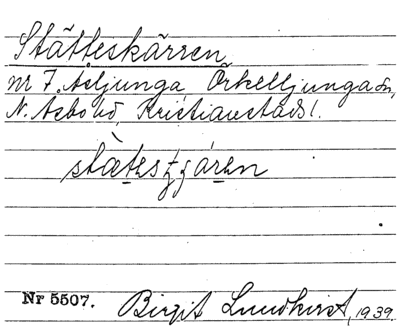 Stätteskärren
nr 7. Åsljunga Örkelljunga sn,
N. Åsbo hd, Kristianstads l.
stàt̲es ʈʂá̲re̲n
Nr 5507. Birgit Lundkvist, 1939.